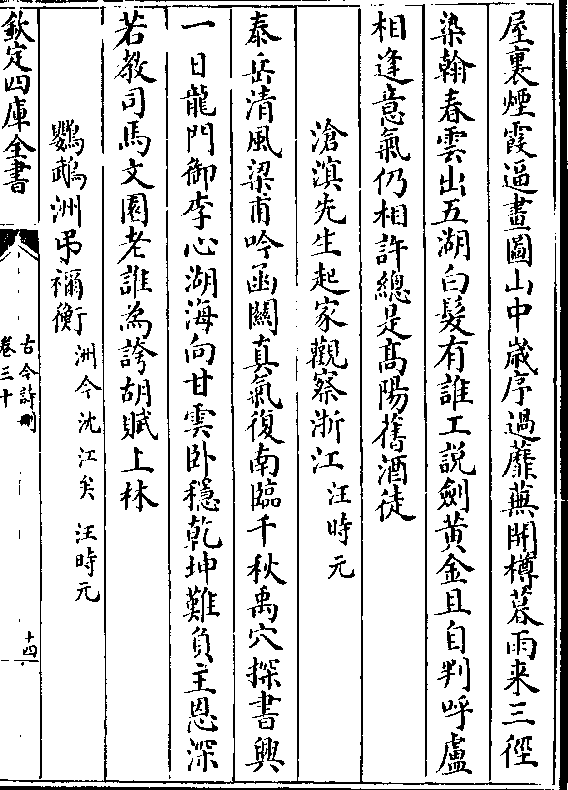 屋裏煙霞逼畫圖山中歲序過蘼蕪開樽暮雨来三徑
染翰春雲出五湖白髪有誰工説劍黄金且自判呼盧
相逢意氣仍相許總是髙陽舊酒徒
滄溟先生起家觀察浙江 汪時元
泰岳清風梁甫吟函關真氣復南臨千秋禹穴探書興
一日龍門御李心湖海向甘雲卧穩乾坤難負主恩深
若教司馬文園老誰為誇胡賦上林
鸚鵡洲弔禰衡 洲今沈江矣 汪時元
欽定四庫全書
古今詩刪
卷三十
十四